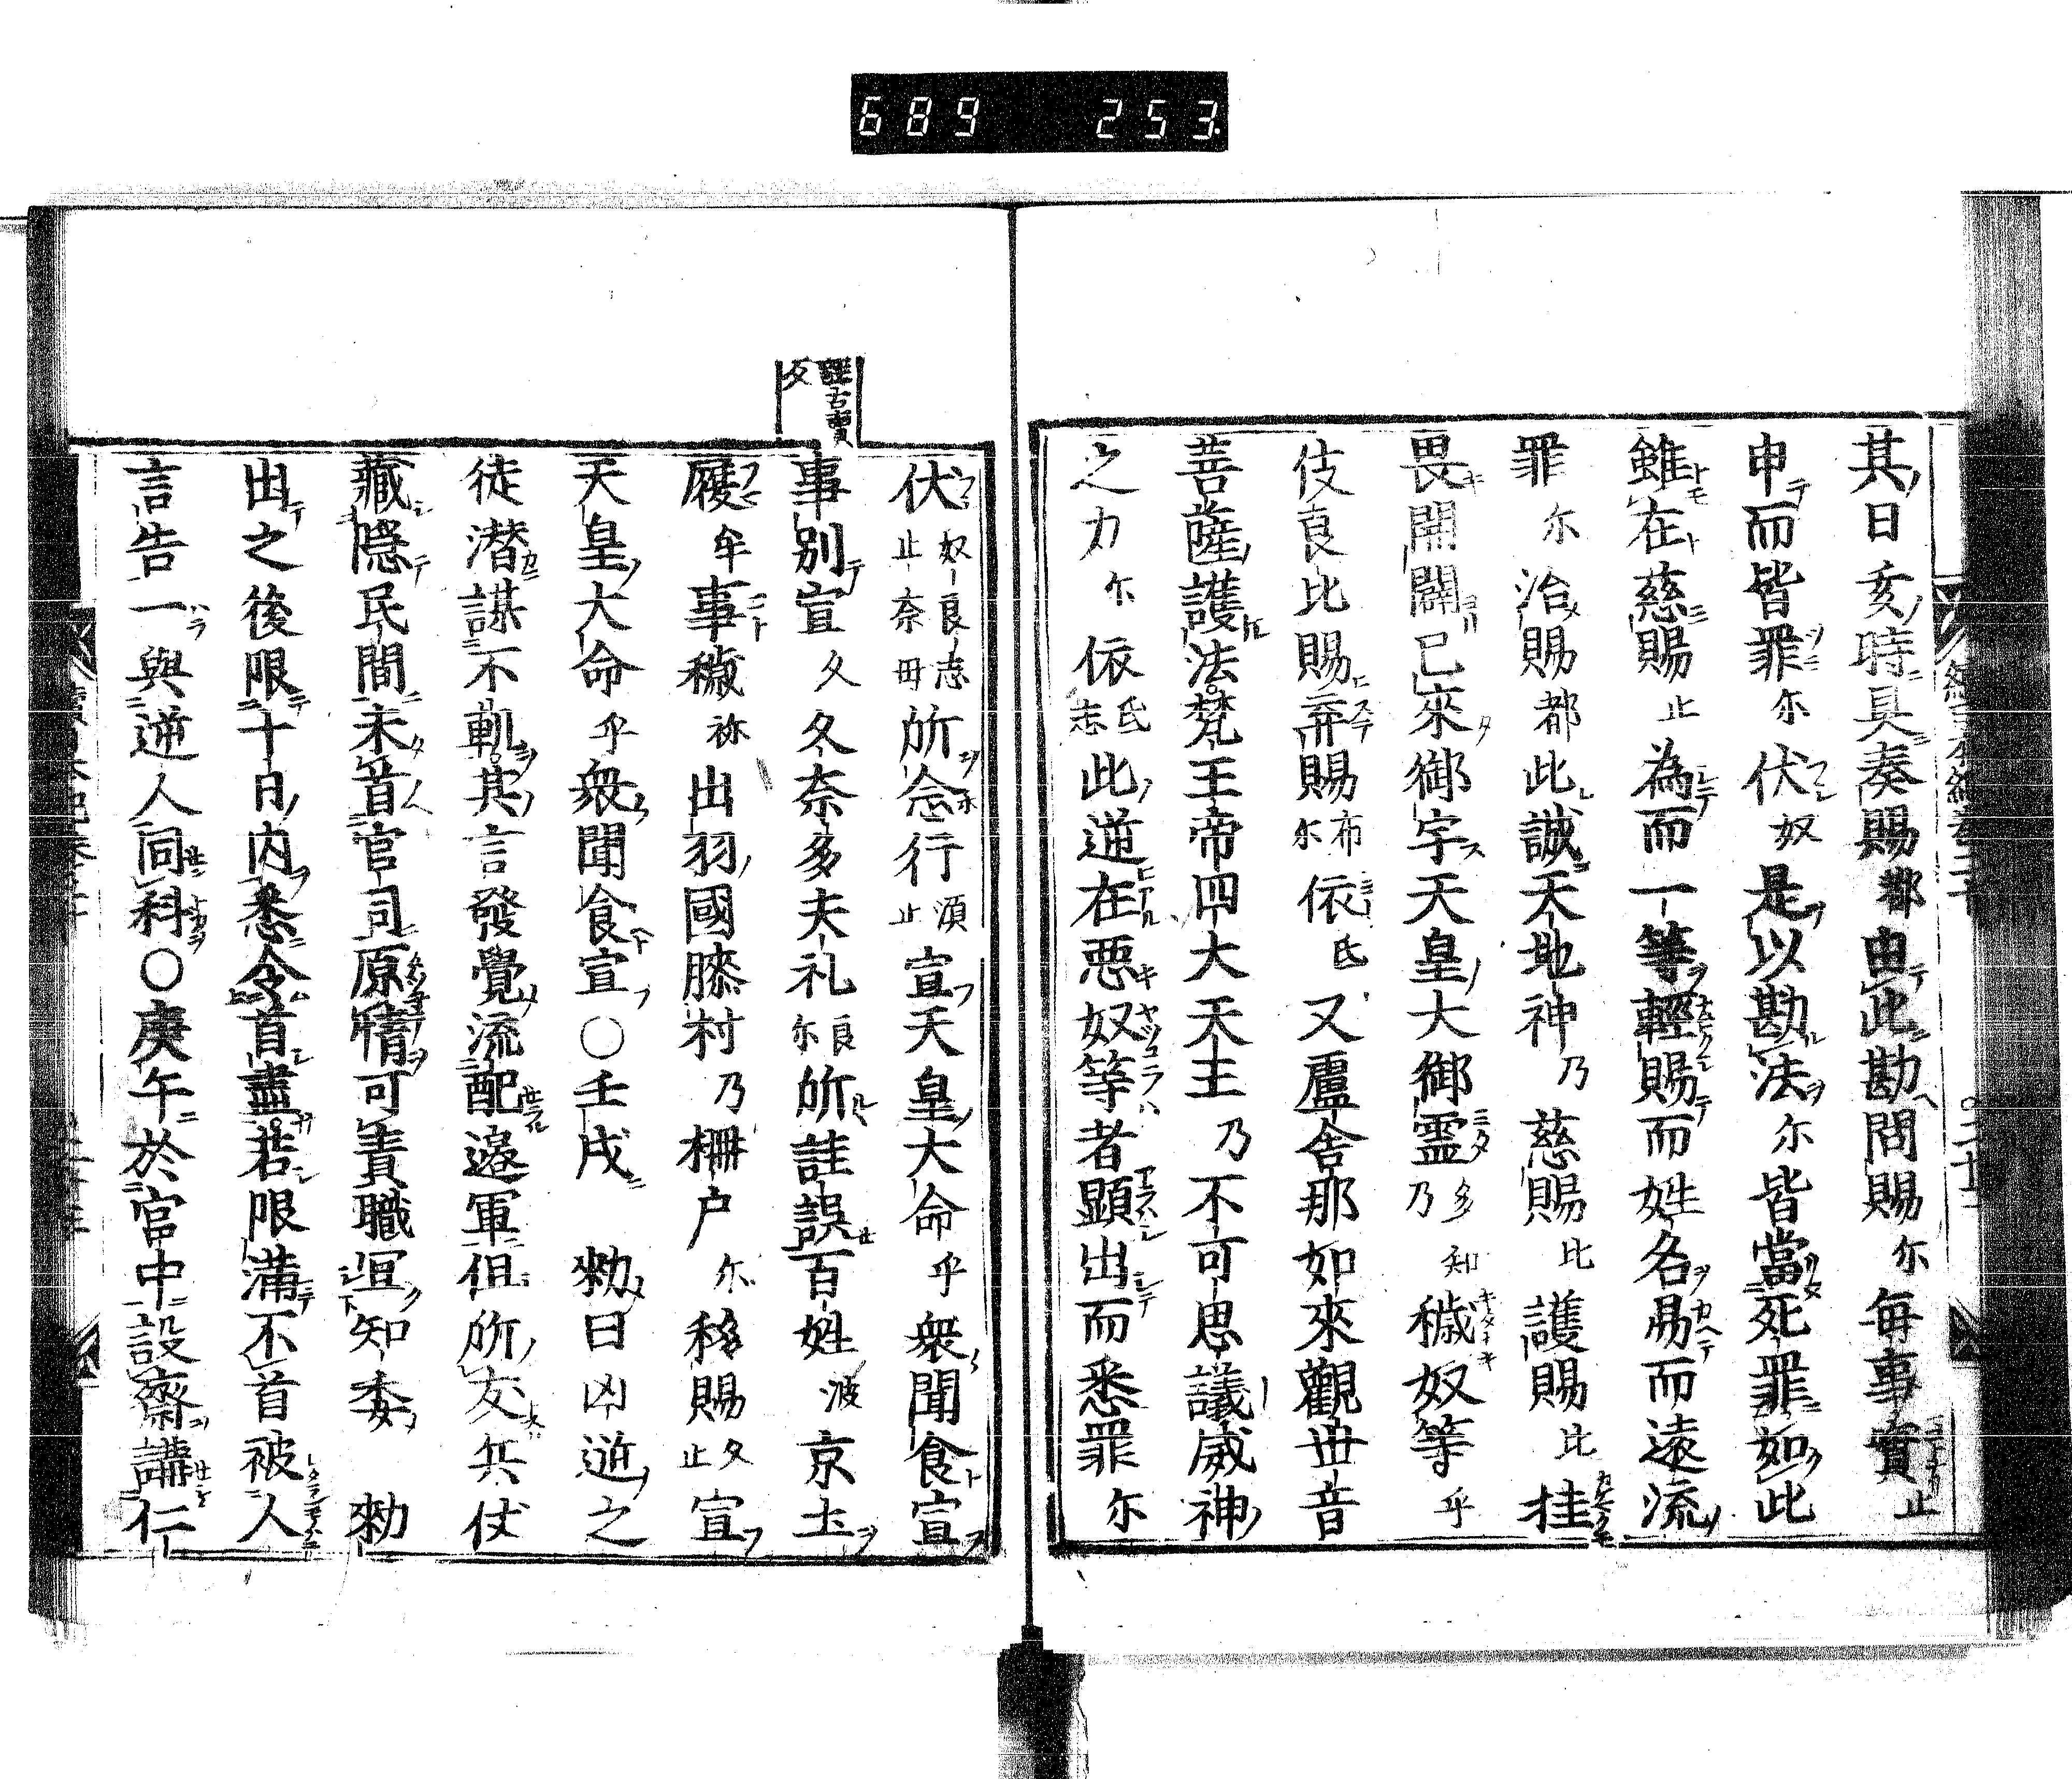 689 253
其日亥時具奏賜都由此勘問賜尓毎事實止
申而皆罪尓伏奴是以勘法尓皆當死罪如此
雖在慈賜止為而一等輕賜而姓名易而遠流
罪尓治賜都此誠天地神乃慈賜比護賜比挂
畏開闢已來御宇天皇大御霊多知乃穢奴等乎
伎良比賜弃賜布尓依氐又盧舎那如來觀世音
菩薩護法梵王帝四大天王乃不可思議威神
之力尓依氐志此逆在悪奴等者顕出而悉罪尓
伏奴良志止奈毋所念行須止宣天皇大命乎衆聞食宣
事別宣久久奈多夫礼良尓所詿誤百姓波京土
履牟事穢祢出羽國勝村乃柵户尓移賜久止宣
天皇大命乎衆聞食宣〇壬戌勑曰凶逆之
徒潜謀不軌其言發覺流配邉軍但所友兵仗
藏隠民間未首官司原情可責職冝知委勑
出之後限十日内悉令首盡若限満不首被人
言告一與逆人同科〇庚午於宫中設齋講仁